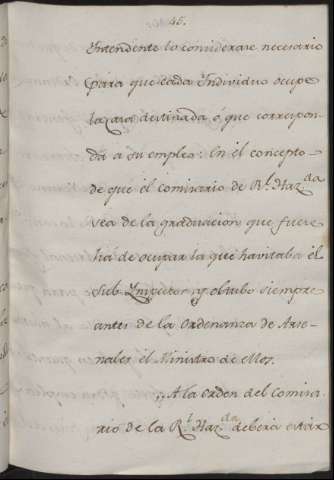 45.
Intendente lo considerare necesario
para que cada Individuo ocupe
la casa destinada ó que correspon-
da a su empleo: En el concepto-
de que el comisario de Rl. Hazda
sea de la graduacion que fuere
há de ocupar la que havitaba el
Sub Inspector, y obtubo siempre
antes de la Ordenanza de Arse-
nales el Ministro de ellos.
A la orden del comisa-
rio de la Rl. Hazda deberá estar